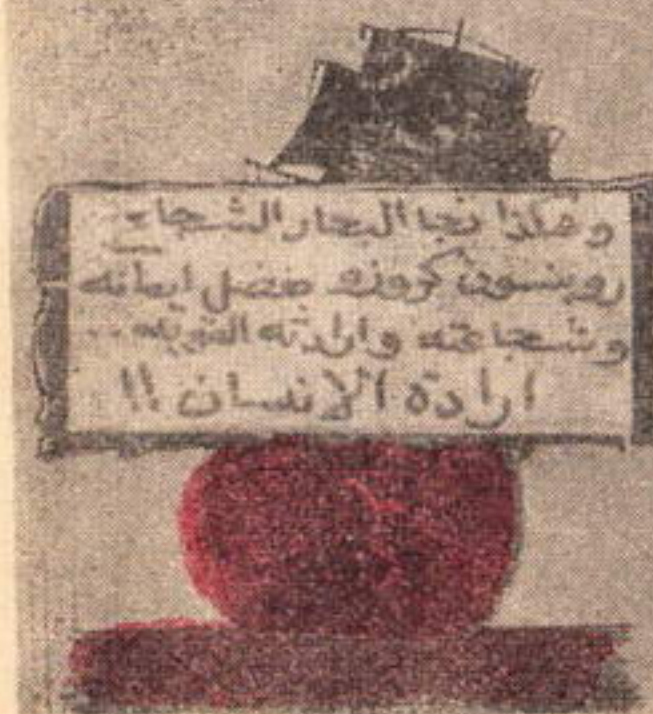 وهكذا نجا البحار الشجاع..
روبنسون كروزو بفضل ايمانه
وشجاعته وارادته القويه..
ارادة الانسان !!